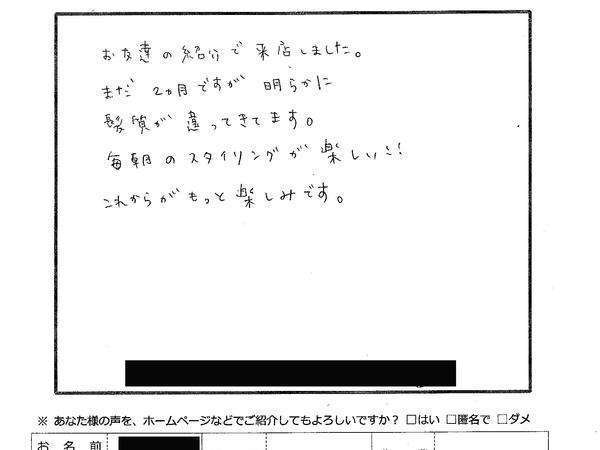 お友達の紹介で来店しました。
まだ 2ヵ月ですが 明らかに
髪質が 違ってきてます。
毎朝のスタイリングが 楽しい!!
これからがもっと楽しみです。
※ あなた様の声を、ホームページなどでご紹介してもよろしいですか? □はい □匿名で □ダメ
お 名 前